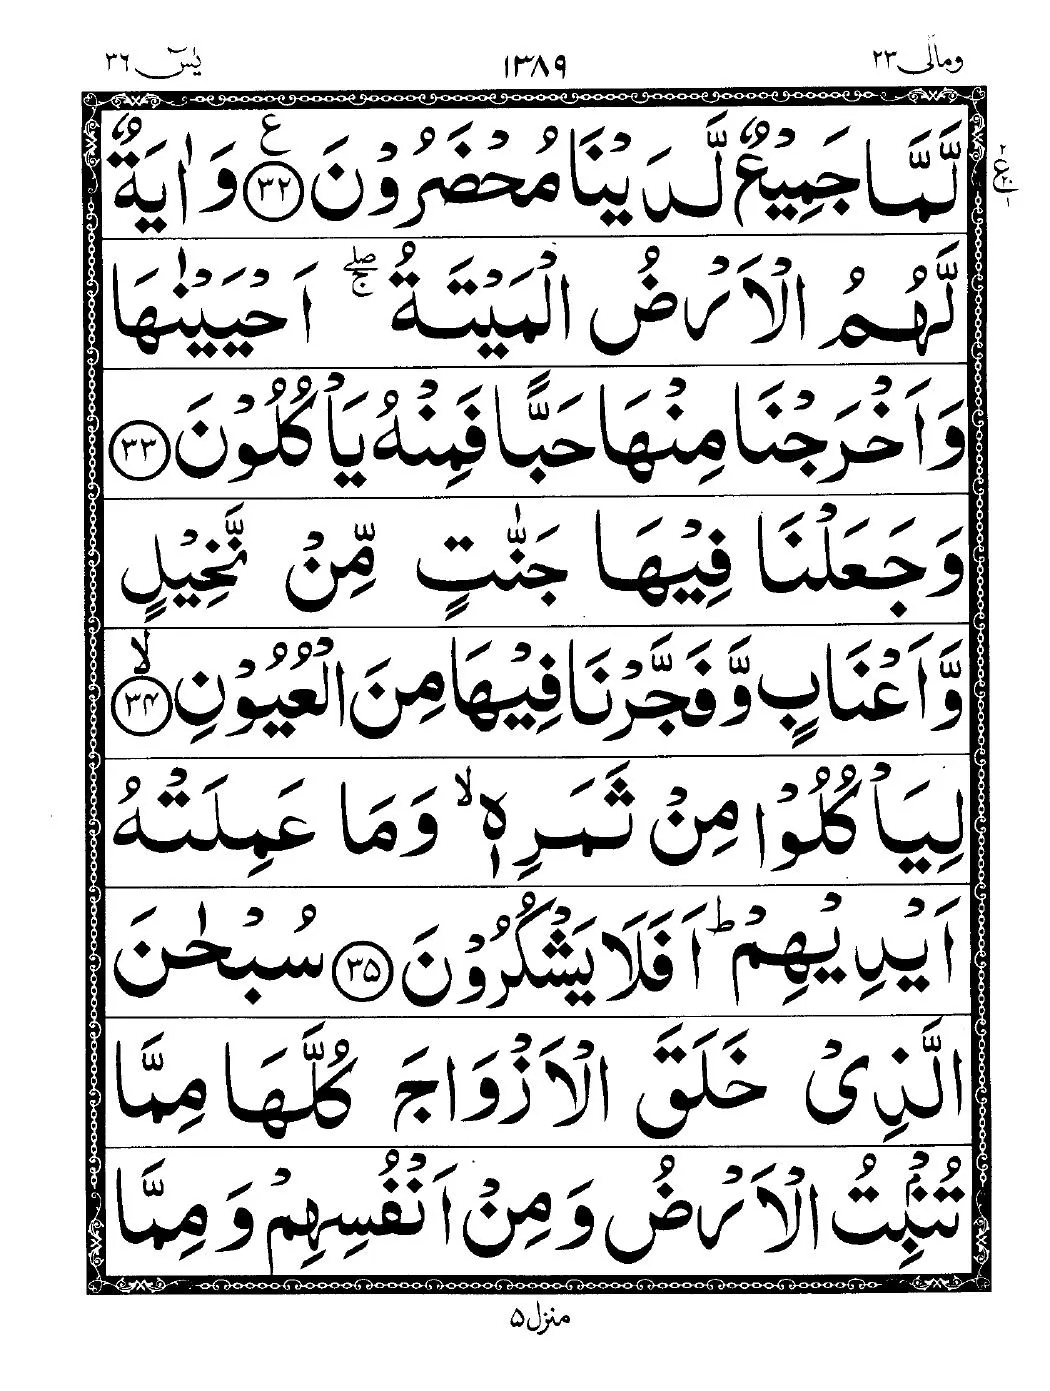 ومالی ٢٣
١٣٨٩
یٰسٓ ٣٦
لَّمَّا جَمِيْعٌ لَّدَيْنَا مُحْضَرُوْنَ ع ٣٢ وَاٰيَةٌ
٢ ع ٢٠ ١
لَّهُمُ الْاَرْضُ الْمَيْتَةُ ۖۚ اَحْيَيْنٰهَا
وَاَخْرَجْنَا مِنْهَا حَبًّا فَمِنْهُ يَاْكُلُوْنَ ٣٣
وَجَعَلْنَا فِيْهَا جَنّٰتٍ مِّنْ نَّخِيْلٍ
وَّاَعْنَابٍ وَّفَجَّرْنَا فِيْهَا مِنَ الْعُيُوْنِ ۙ ٣٤
لِيَاْكُلُوْا مِنْ ثَمَرِهٖ ۙ وَمَا عَمِلَتْهُ
اَيْدِيْهِمْ ؕ اَفَلَا يَشْكُرُوْنَ ٣٥ سُبْحٰنَ
الَّذِيْ خَلَقَ الْاَزْوَاجَ كُلَّهَا مِمَّا
تُنْۢبِتُ الْاَرْضُ وَمِنْ اَنْفُسِهِمْ وَمِمَّا
منزل ۵